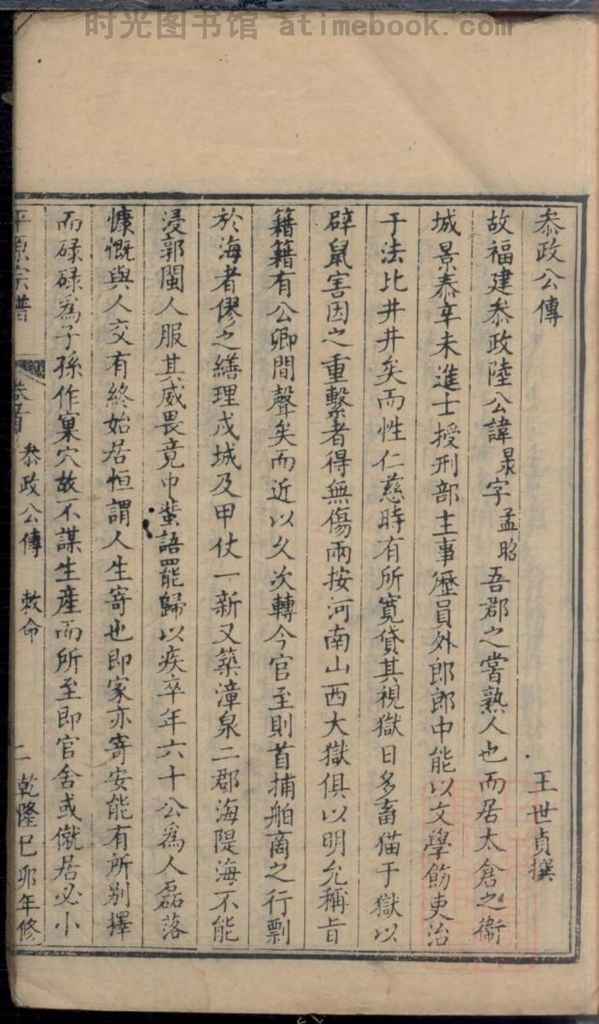 时光图书馆 atimebook.com
叅政公傳
王世貞撰
故福建叅政陸公諱昶字孟昭吾郡之嘗熟人也而居太倉之衛
城景泰辛未進士授刑部主事歷員外郎郎中能以文學飾吏治
于法比井井矣而性仁慈時有所寛貸其視獄日多畜猫于獄以
辟鼠害因之重繫者得無傷兩按河南山西大獄俱以明允稱旨
籍籍有公卿間聲矣而近以久次轉今官至則首捕舶商之行剽
於海者僇之繕理戍城及甲仗一新又築漳泉二郡海隄海不能
浸郭閩人服其威畏竟中蜚語罷歸以疾卒年六十公為人磊落
慷慨與人交有終始居恒謂人生寄也即家亦寄安能有所别擇
而碌碌為子孫作窠穴故不謀生産而所至即官舍或僦居必小
平原宗譜 卷首 叅政公傳 敕命 二 乾隆己卯年修